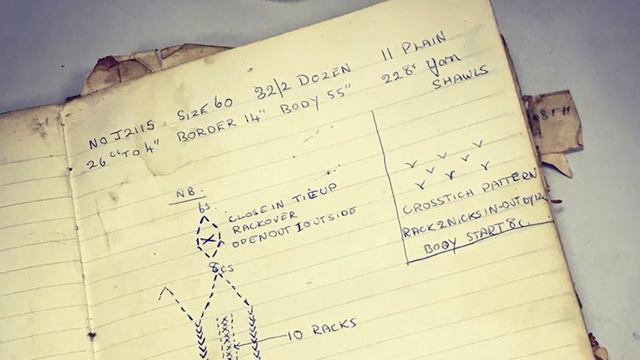 NO J2115 SIZE 60 32/2 DOZEN 11 PLAIN
26 cs TO 4" BORDER 14" BODY 55" 228s Yarn
SHAWLS
NB.
6s
CLOSE IN TIE UP
RACKOVER
OPENOUT 1 OUTSIDE
8cs
10 RACKS
CROSSTICH PATTERN
RACK 2 NICKS IN-OUT
BODY START 8c.